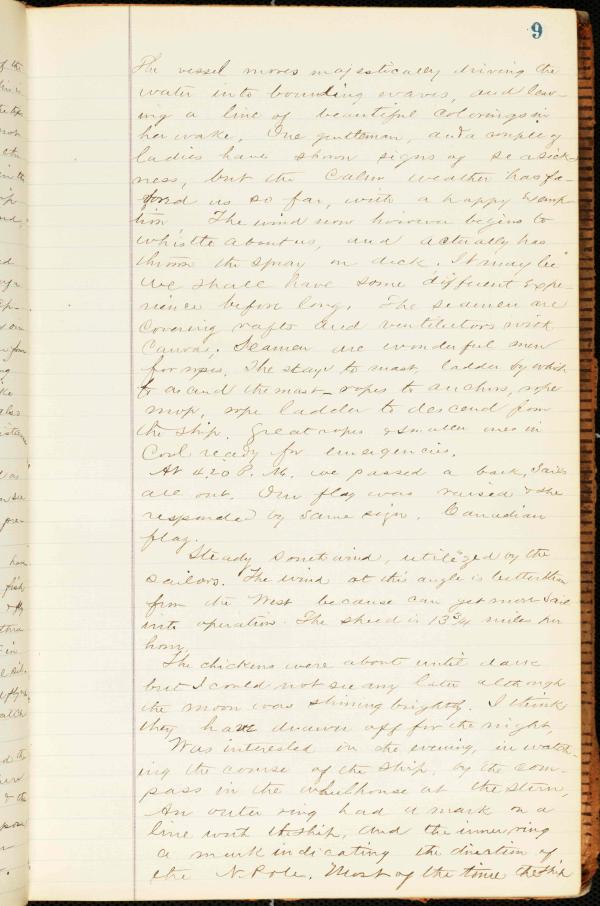 9
The vessel moves majestically driving the
water into bounding waves, and leav-
ing a line of beautiful colorings in
her wake. One gentleman, and a couple of
ladies have shown signs of seasick-
ness, but the calm weather has fa-
vored us so far, with a happy exemp
tion. The wind now however begins to
whistle about us, and actually has
thrown the spray on deck. It may be
we shall have some different expe-
rience before long. The seamen are
covering rafts and ventilators with
canvas. Seamen are wonderful men
for ropes. The stays to mast, ladder by which
to ascend the mast - ropes to anchors, rope
mop, rope ladder to descend from
the ship. Great ropes & smaller ones in
coil ready for emergencies.
At 4.20 P.M. we passed a bark, sails
all out. Our flag was raised & she
responded by same sign. Canadian
flag.
Steady south wind, utilized by the
sailors. The wind at this angle is better than
from the West because can get more sail
into operation. The speed is 13 3/4 miles per
hour.
The chickens were about until dark
but I could not see any later although
the moon was shining brightly. I think
they have drawn off for the night.
Was interested in the evening, in watch-
ing the course of the ship, by the com-
pass in the wheelhouse at the stern,
An outer ring had a mark on a
line with the ship, and the inner ring
a mark indicating the direction of
the N. Pole. Most of the time the ship